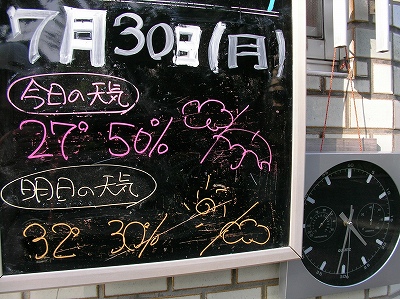 7月30日(月)
今日の天気
27° 50%
明日の天気
32° 30%